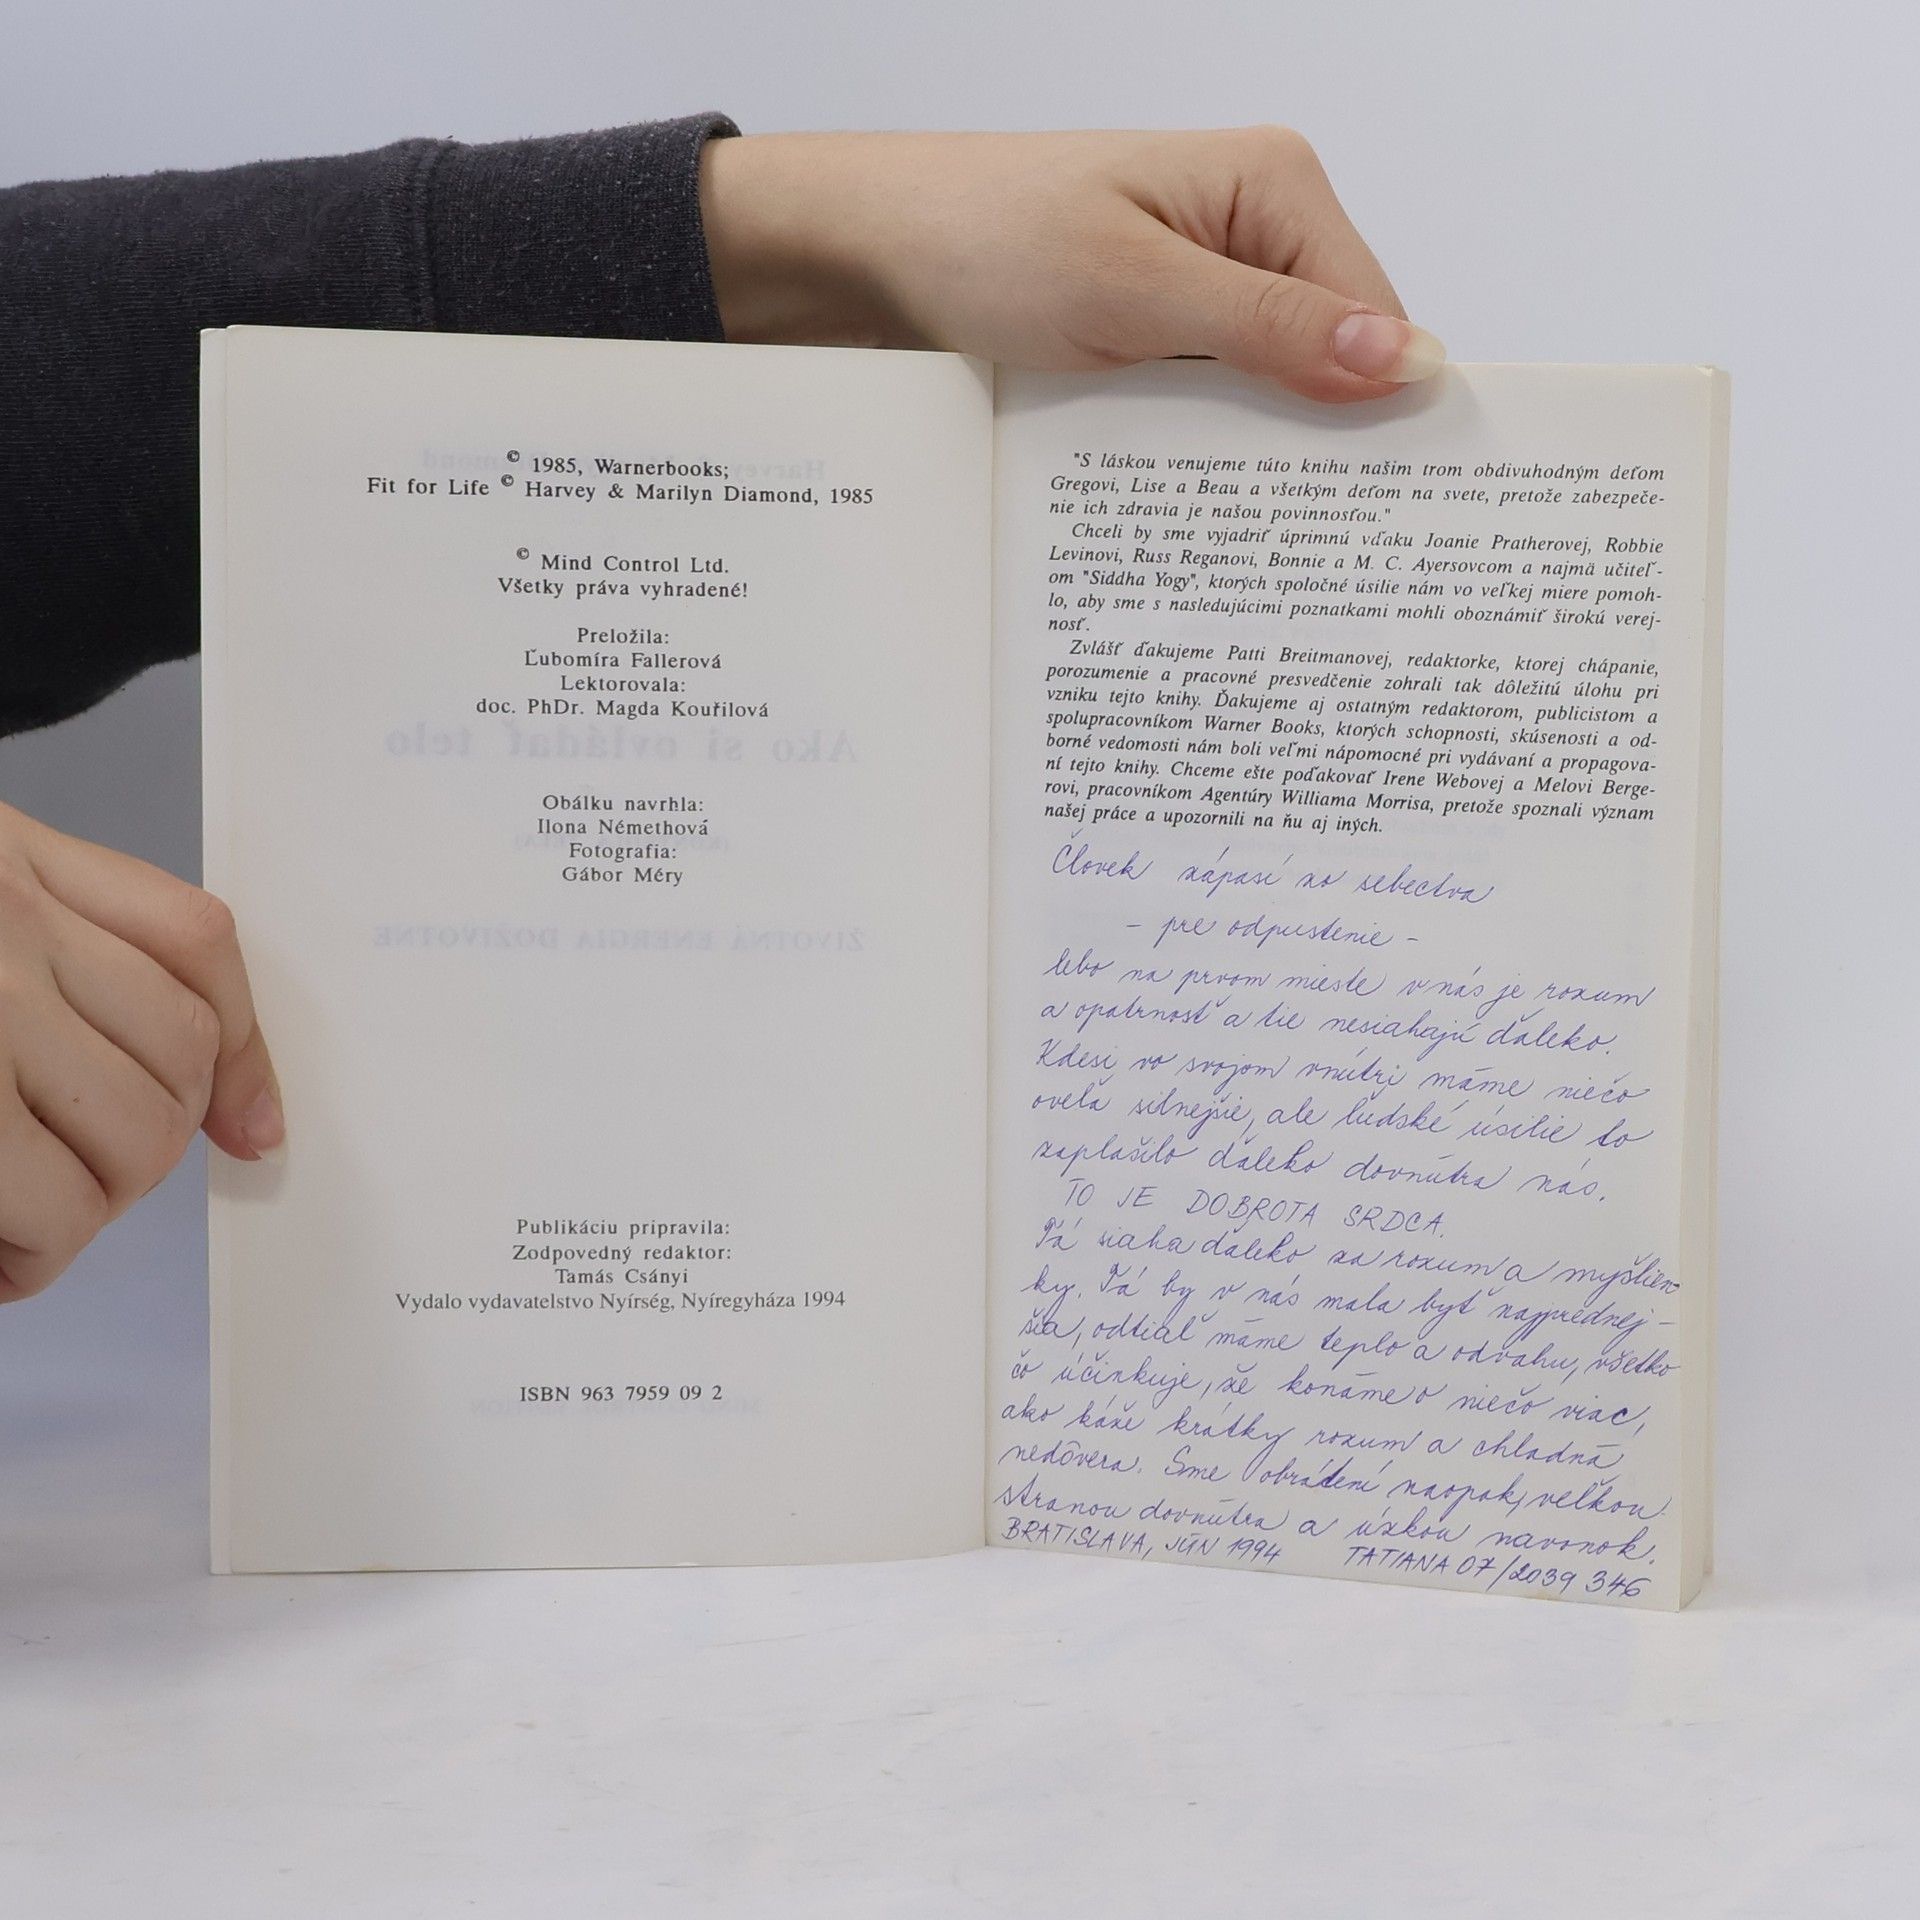 © 1985, Warnerbooks;
Fit for Life © Harvey & Marilyn Diamond, 1985
© Mind Control Ltd.
Všetky práva vyhradené!
Preložila:
Ľubomíra Fallerová
Lektorovala:
doc. PhDr. Magda Kouřilová
Obálku navrhla:
Ilona Némethová
Fotografia:
Gábor Méry
Publikáciu pripravila:
Zodpovedný redaktor:
Tamás Csányi
Vydalo vydavatelstvo Nyírség, Nyíregyháza 1994
ISBN 963 7959 09 2
"S láskou venujeme túto knihu našim trom obdivuhodným deťom
Gregovi, Lise a Beau a všetkým deťom na svete, pretože zabezpeče-
nie ich zdravia je našou povinnosťou."
Chceli by sme vyjadriť úprimnú vďaku Joanie Pratherovej, Robbie
Levinovi, Russ Reganovi, Bonnie a M. C. Ayersovcom a najmä učiteľ-
om "Siddha Yogy", ktorých spoločné úsilie nám vo veľkej miere pomoh-
lo, aby sme s nasledujúcimi poznatkami mohli oboznámiť širokú verej-
nosť.
Zvlášť ďakujeme Patti Breitmanovej, redaktorke, ktorej chápanie,
porozumenie a pracovné presvedčenie zohrali tak dôležitú úlohu pri
vzniku tejto knihy. Ďakujeme aj ostatným redaktorom, publicistom a
spolupracovníkom Warner Books, ktorých schopnosti, skúsenosti a od-
borné vedomosti nám boli veľmi nápomocné pri vydávaní a propagova-
ní tejto knihy. Chceme ešte poďakovať Irene Webovej a Melovi Berge-
rovi, pracovníkom Agentúry Williama Morrisa, pretože spoznali význam
našej práce a upozornili na ňu aj iných.
Človek zápasí zo sebectva
– pre odpustenie –
lebo na prvom mieste v nás je rozum
a opatrnosť a tie nesiahajú ďaleko.
Kdesi vo svojom vnútri máme niečo
oveľa silnejšie, ale ľudské úsilie to
zaplašilo ďaleko dovnútra nás.
TO JE DOBROTA SRDCA.
Tá siaha ďaleko za rozum a myšlien-
ky. Tá by v nás mala byť najprednej-
šia, odtiaľ máme teplo a odvahu, všetko
čo účinkuje, že konáme o niečo viac,
ako káže krátky rozum a chladná
nedôvera. Sme obrátení naopak, veľkou
stranou dovnútra a úzkou navonok.
BRATISLAVA, JÚN 1994 TATIANA 07/2039 346